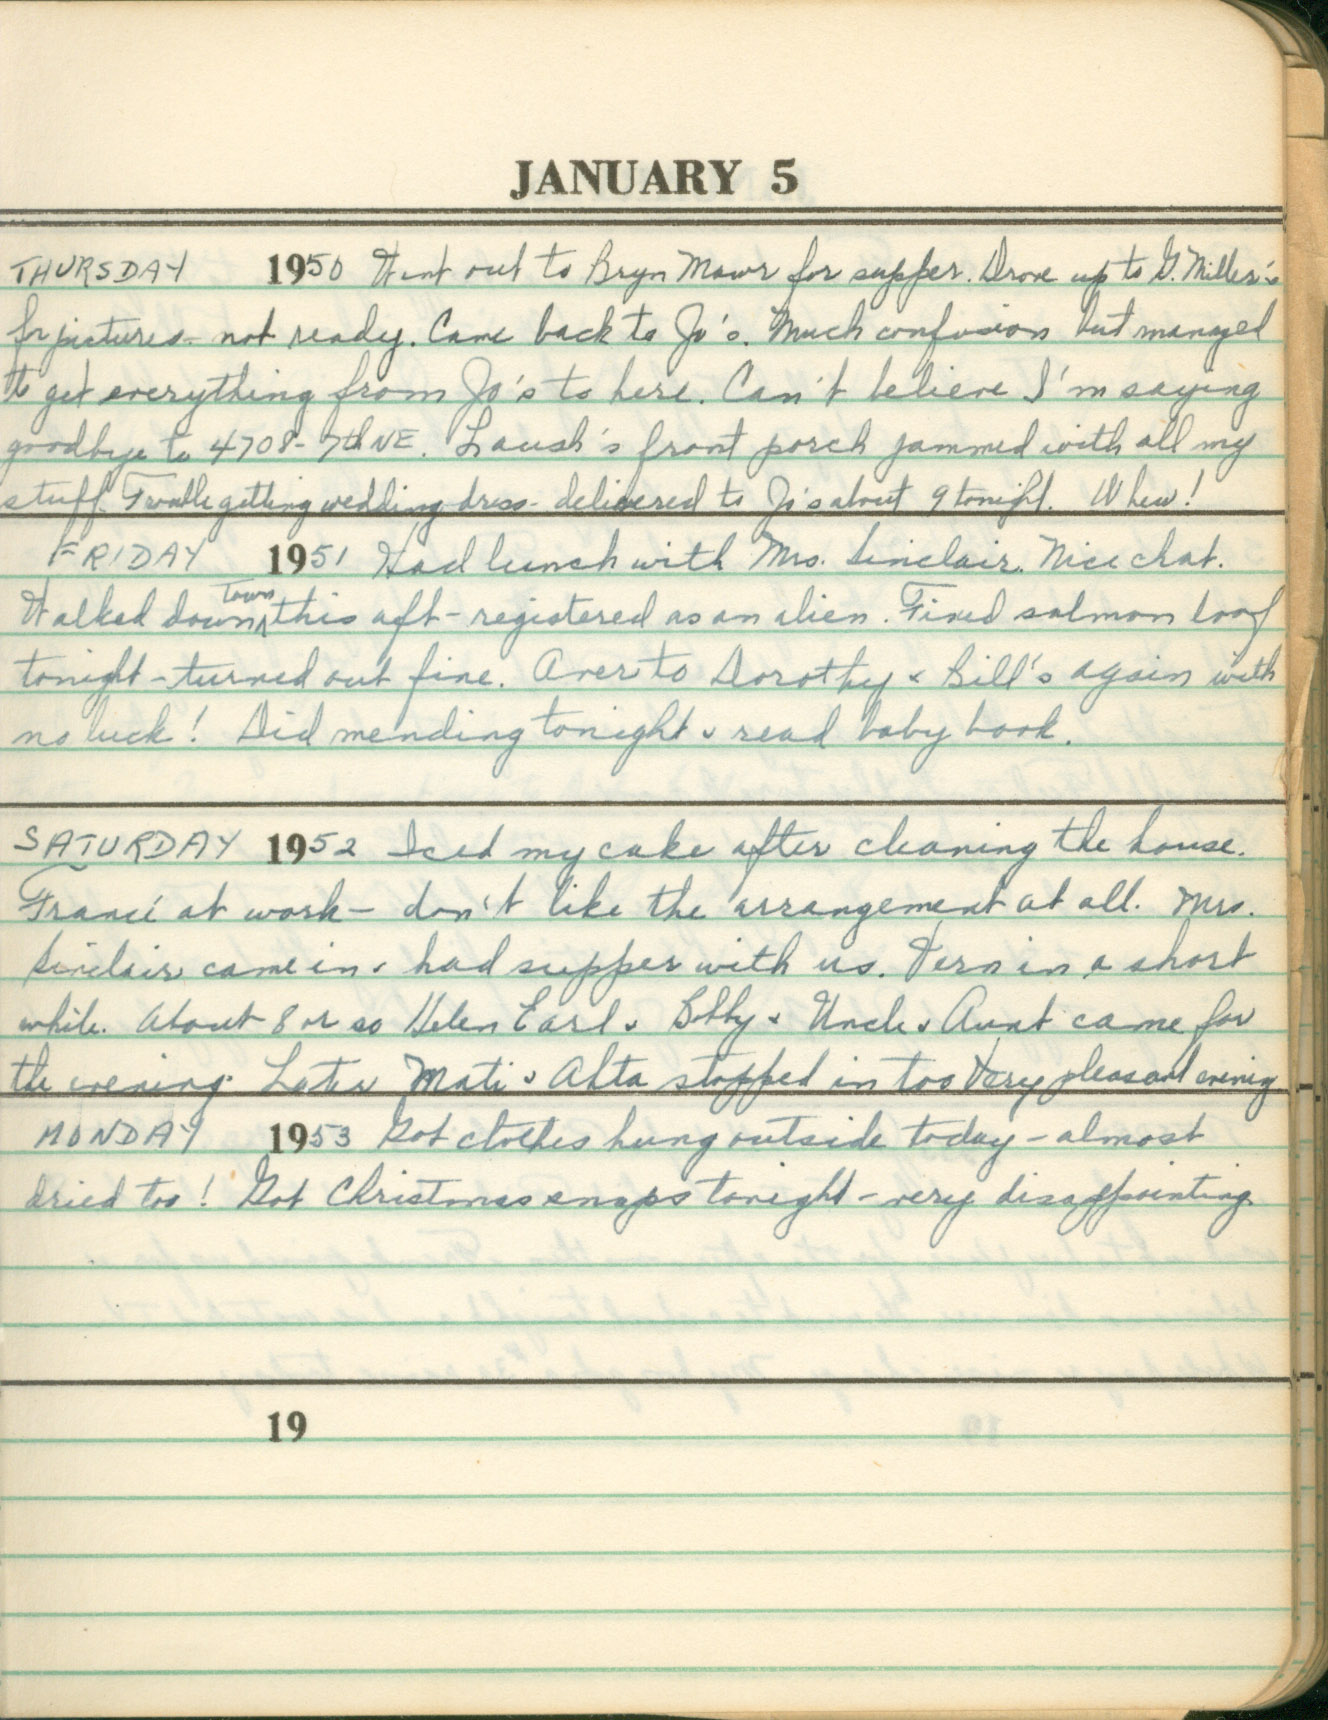 JANUARY 5
THURSDAY 1950 Went out to Bryn Mawr for supper. Drove up to G. Miller's
for pictures - not ready. Came back to Jo's. Much confusion but managed
to get everything from Jo's to here. Can't believe I'm saying
goodbye to 4708 - 7th NE. Laush's front porch jammed with all my
stuff. Trouble getting wedding dress - delivered to Jo's about 9 tonight. Whew!
FRIDAY 1951 Had lunch with Mrs. Sinclair. Nice chat.
Walked down town this aft - registered as an alien. Fixed salmon loaf
tonight - turned out fine. Over to Dorothy & Bill's again with
no luck! Did mending tonight & read baby book.
SATURDAY 1952 Iced my cake after cleaning the house.
at work - don't like the arrangement at all. Mrs.
Sinclair came in & had supper with us. Vern in a short
while. About 8 or so Helen Earl & Bobby & Uncle & Aunt came for
the evening. Later Mati & Alta stopped in too Very pleasant evening
MONDAY 1953 Got clothes hung outside today - almost
dried too! Got Christmas snaps tonight - very disappointing
19